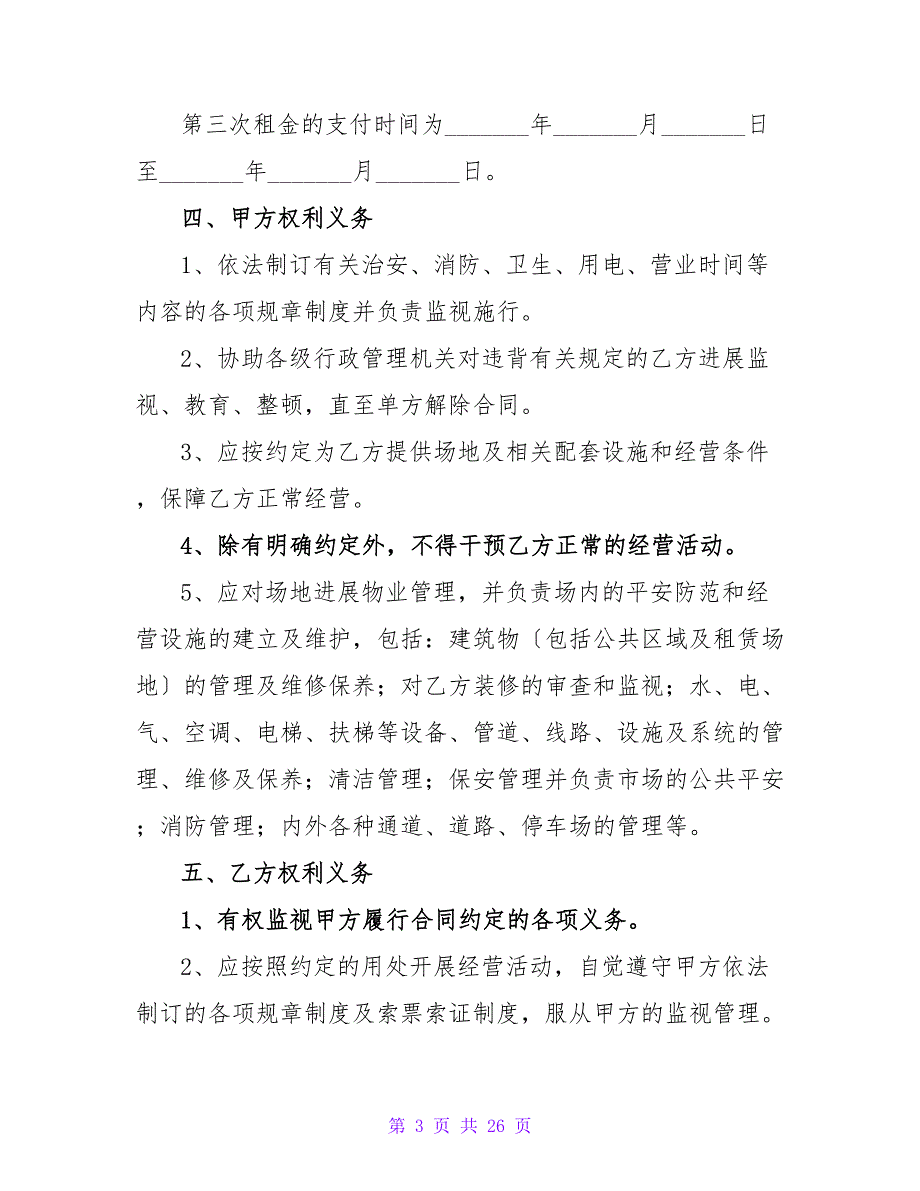 第三次租金的支付时间为_______年_______月_______日
至_______年_______月_______日。
四、甲方权利义务
1、依法制订有关治安、消防、卫生、用电、营业时间等
内容的各项规章制度并负责监视施行。
2、协助各级行政管理机关对违背有关规定的乙方进展监
视、教育、整顿，直至单方解除合同。
3、应按约定为乙方提供场地及相关配套设施和经营条件
，保障乙方正常经营。
4、除有明确约定外，不得干预乙方正常的经营活动。
5、应对场地进展物业管理，并负责场内的平安防范和经
营设施的建立及维护，包括：建筑物〔包括公共区域及租赁场
地〕的管理及维修保养；对乙方装修的审查和监视；水、电、
气、空调、电梯、扶梯等设备、管道、线路、设施及系统的管
理、维修及保养；清洁管理；保安管理并负责市场的公共平安
；消防管理；内外各种通道、道路、停车场的管理等。
五、乙方权利义务
1、有权监视甲方履行合同约定的各项义务。
2、应按照约定的用处开展经营活动，自觉遵守甲方依法
制订的各项规章制度及索票索证制度，服从甲方的监视管理。
第 3 页 共 26 页